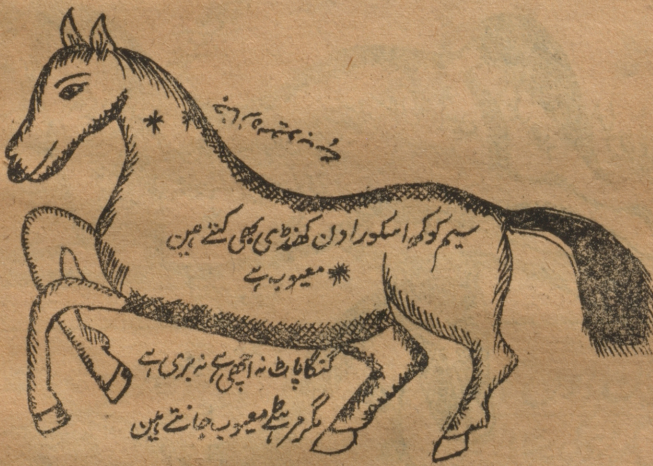 سیم کوکھ اسکو راون کھنڈی بھی کہتے ہین
معیوب ہے
گنگا پاٹ نہ اچھی ہے نہ بری ہے
مگر مرہٹے معیوب جانتے ہین